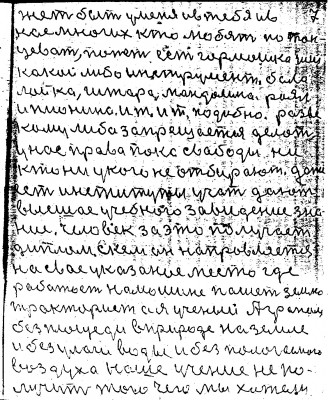 жет быт у меня и в тебя и в
нас многих кто любят по тан
цеват, поют. ест гармошка или
какой либо инструмент. бала
лайка, гитара, мандолина. роял
и пионино. и т. и т. подобно. разве
кому либо запрещается делат
у нас права пока свабоды. ни
кто ни у кого не отбирают. даже
ест институты учат дают
высшае учебного заведение зна
ние. человек за это получает
диплом, с кем он направляется
на свае указание место где
работает на машине пашет землю
тракторист а я ученый Агроном
без площеди в природе на земле
и без улаги воды и без пологаемого
воздуха наше учение не по-
лучит того чего мы хатели